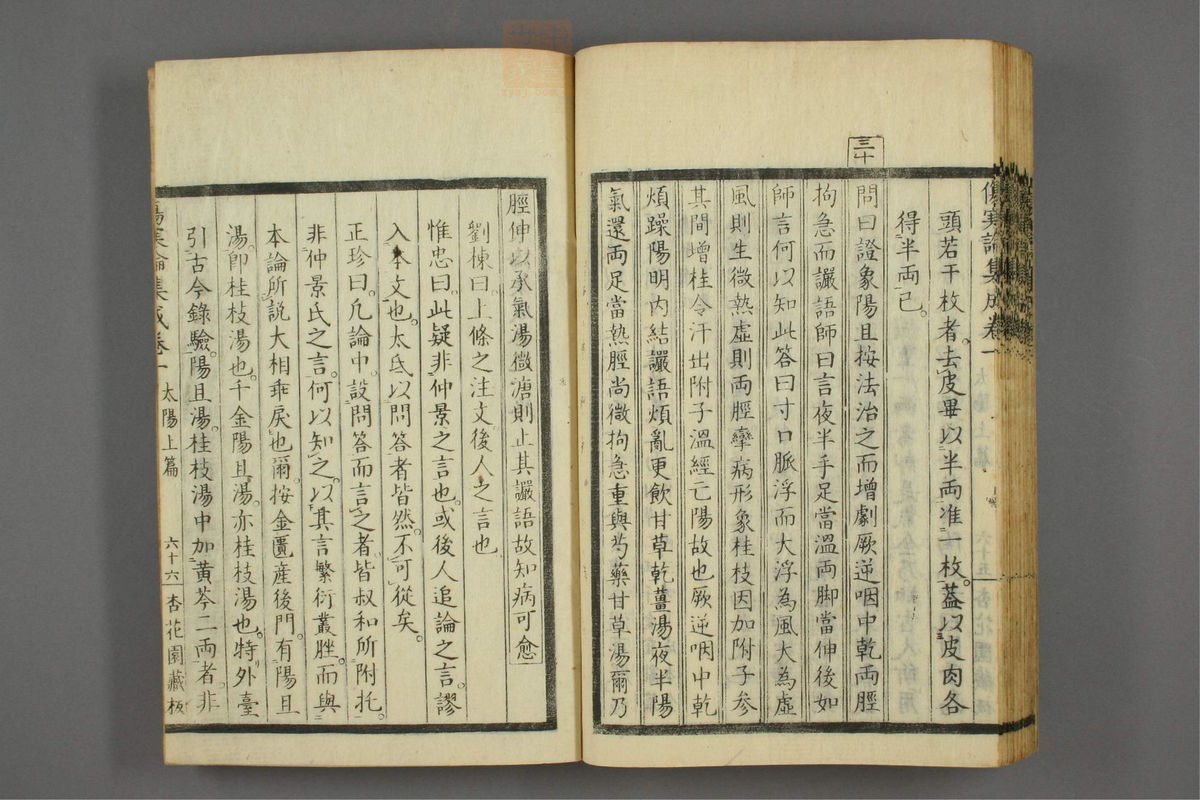 傷寒論集成卷一
頭若干枚者。去皮畢。以半両准一枚。蓋以皮肉各
得半両已。
三十
問曰證象陽旦按法治之而增劇厥逆咽中乾両脛
拘急而讝語師曰言夜半手足當溫両脚當伸後如
師言何以知此答曰寸口脈浮而大浮為風大為虛
風則生微熱虛則両脛攣病形象桂枝因加附子參
其間增桂令汗出附子溫經亡陽故也厥逆咽中乾
煩躁陽明內結讝語煩亂更飲甘草乾薑湯夜半陽
氣還両足當熱脛尚微拘急重與芍藥甘草湯爾乃
脛伸以承氣湯微溏則止其讝語故知病可愈
劉棟曰。上條之注文。後人之言也
惟忠曰。此疑非仲景之言也。或後人追論之言。謬
入本文也。太氐以問答者皆然。不可從矣。
正珍曰。凡論中。設問答而言之者。皆叔和所附托。
非仲景氏之言。何以知之。以其言繁衍叢脞。而與
本論所說大相乖戾也爾。按金匱產後門。有陽旦
湯。即桂枝湯也。千金陽旦湯。亦桂枝湯也。特外臺
引古今錄驗。陽旦湯。桂枝湯中加黃芩二両者。非
傷寒論集成卷一 太陽上篇 六十六 杏花園藏板